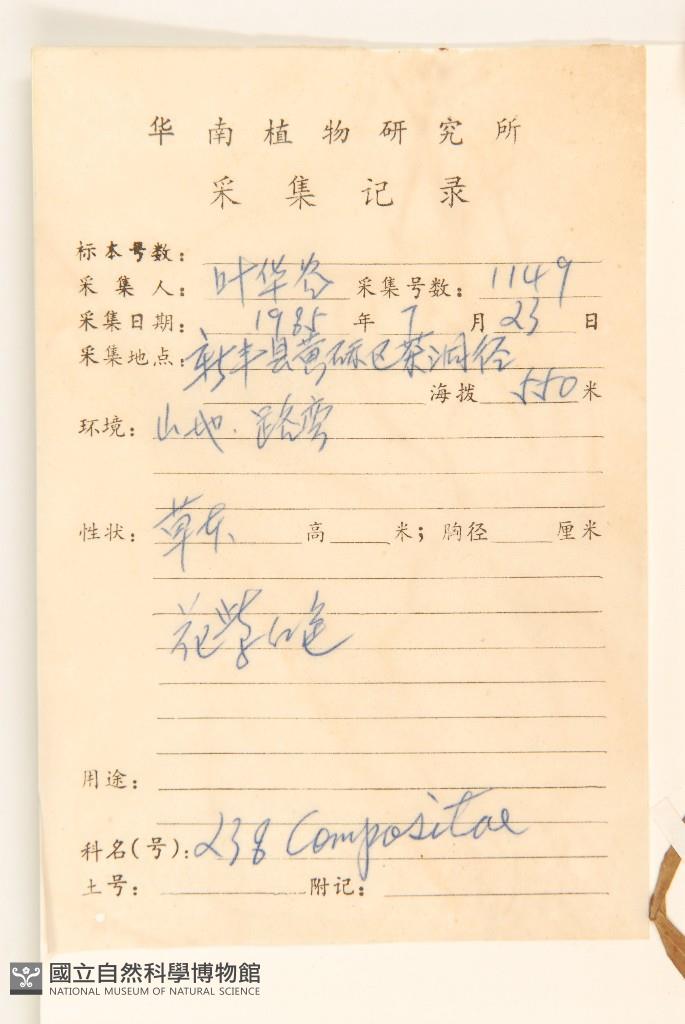 华南植物研究所
采集记录
标本号数：
采集人：叶华谷 采集号数：1149
采集日期：1985年7月23日
采集地点：新丰县黄磜区茶洞径
海拨 550米
环境：山地.路旁
性状：草本 高 米；胸径 厘米
花紫红色
用途：
科名(号)：238 Compositae
土号： 附记：
國立自然科學博物館
NATIONAL MUSEUM OF NATURAL SCIENCE